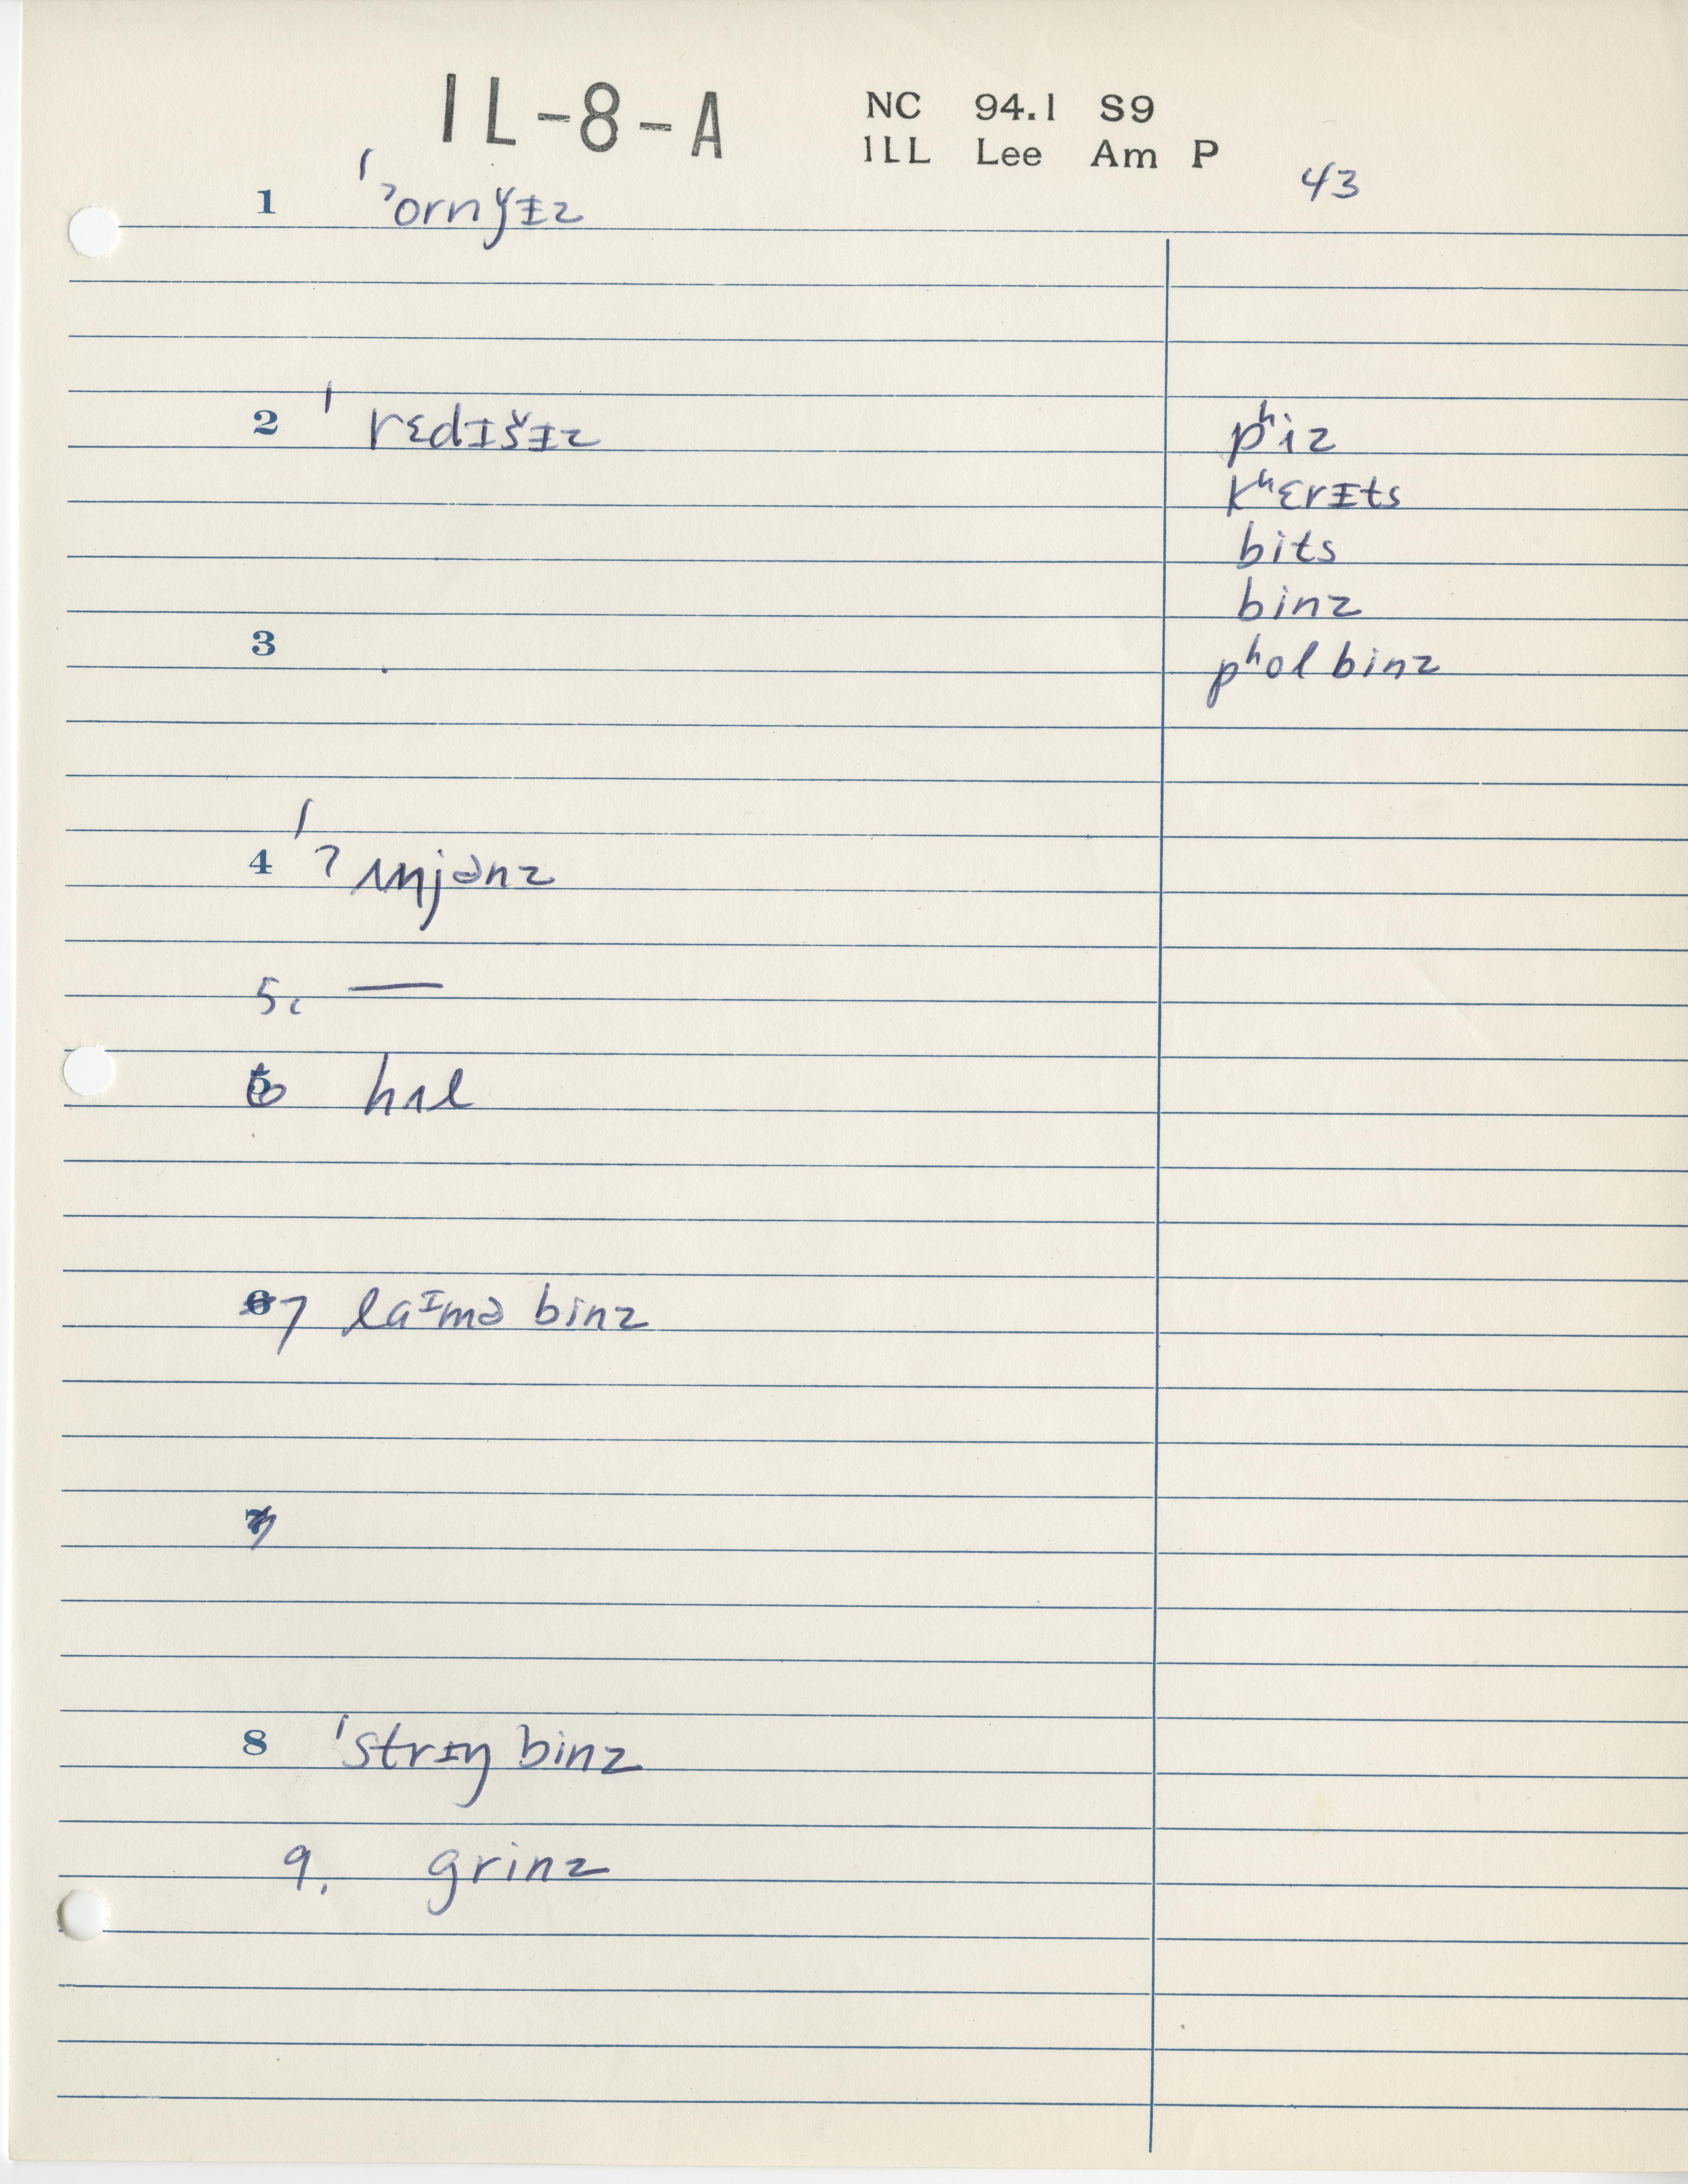 IL-8-A
NC 94.1 S9
ILL Lee Am P
43
1 ˈˀornǰɪz
2 ˈrɛdɪšɪz
3
4 ˈʔʌnjənz
5. —
6 hʌl
7 laᶦmə binz
7
8 ˈstrɪŋ binz
9. grinz
pʰiz
kʰɛrɪts
bits
binz
pʰol binz